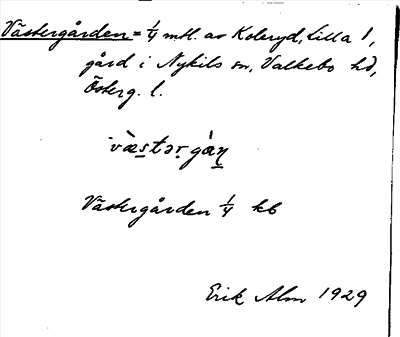 Västergården = 1/4 mtl. av Koleryd, Lilla 1,
gård i Nykils sn, Valkebo hd,
Österg. l.
Västergården 1/4 kb
Erik Alm 1929